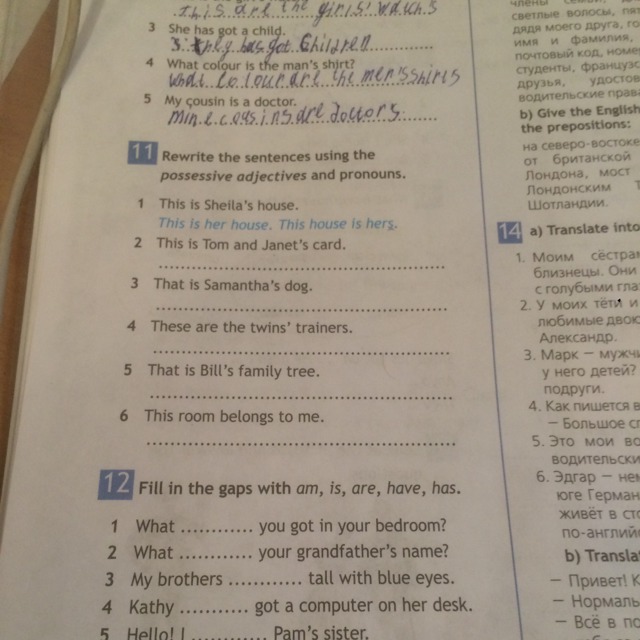 This are the girls' watchs
3 She has got a child.
They has got Children
4 What colour is the man's shirt?
what colour are the men's shirts
5 My cousin is a doctor.
mine cousins are doctors
11 Rewrite the sentences using the
possessive adjectives and pronouns.
1 This is Sheila's house.
This is her house. This house is hers.
2 This is Tom and Janet's card.
3 That is Samantha's dog.
4 These are the twins' trainers.
5 That is Bill's family tree.
6 This room belongs to me.
12 Fill in the gaps with am, is, are, have, has.
1 What ............ you got in your bedroom?
2 What ............ your grandfather's name?
3 My brothers ............ tall with blue eyes.
4 Kathy ............ got a computer on her desk.
5 Hello! I ............ Pam's sister.
светлые волосы,
дядя моего друга,
имя и фамилия,
почтовый код,
студенты,
друзья,
водительские
b) Give the English
the prepositions:
на северо-востоке
от британской
Лондона, мост
Лондонским
Шотландии.
14 a) Translate into
1. Моим
близнецы. Они
с голубыми
2. У моих тёти и
любимые
Александр.
3. Марк –
у него детей?
подруги.
4. Как пишется
– Большое
5. Это мои
6. Эдгар –
юге
живёт в
b)
– Привет!
– Всё в